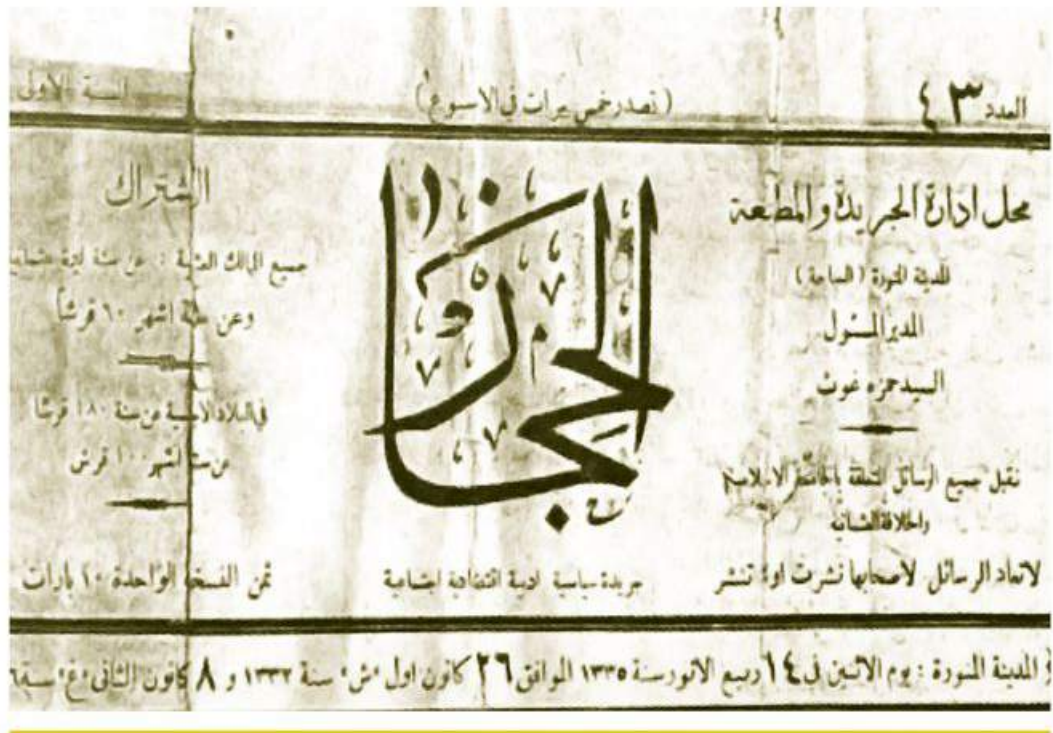 العدد ٤٣
(تصدر خمس مرات في الاسبوع)
السنة الاولى
محل ادارة الجريدة والمطبعة
المدينة المنورة (الساحة)
المدير المسئول
السيد حمزه غوث
تقبل جميع الرسائل المتعلقة بالجامعة الاسلامية
والخلافة العثمانية
لاتعاد الرسائل لاصحابها نشرت او لم تنشر
الحجاز
جريدة سياسية ادبية اقتصادية اجتماعية
الاشتراك
جميع الممالك العثمانية : عن سنة
وعن ستة اشهر ٦٠ قرشاً
في البلاد الاجنبية عن سنة ١٨٠ قرشا
عن ستة اشهر ١٠٠ قرش
ثمن النسخة الواحدة ١٠ بارات
المدينة المنورة : يوم الاثنين في ١٤ ربيع الانور سنة ١٣٣٥ الموافق ٢٦ كانون اول "ش" سنة ١٣٣٢ و ٨ كانون الثاني "غ" سنة